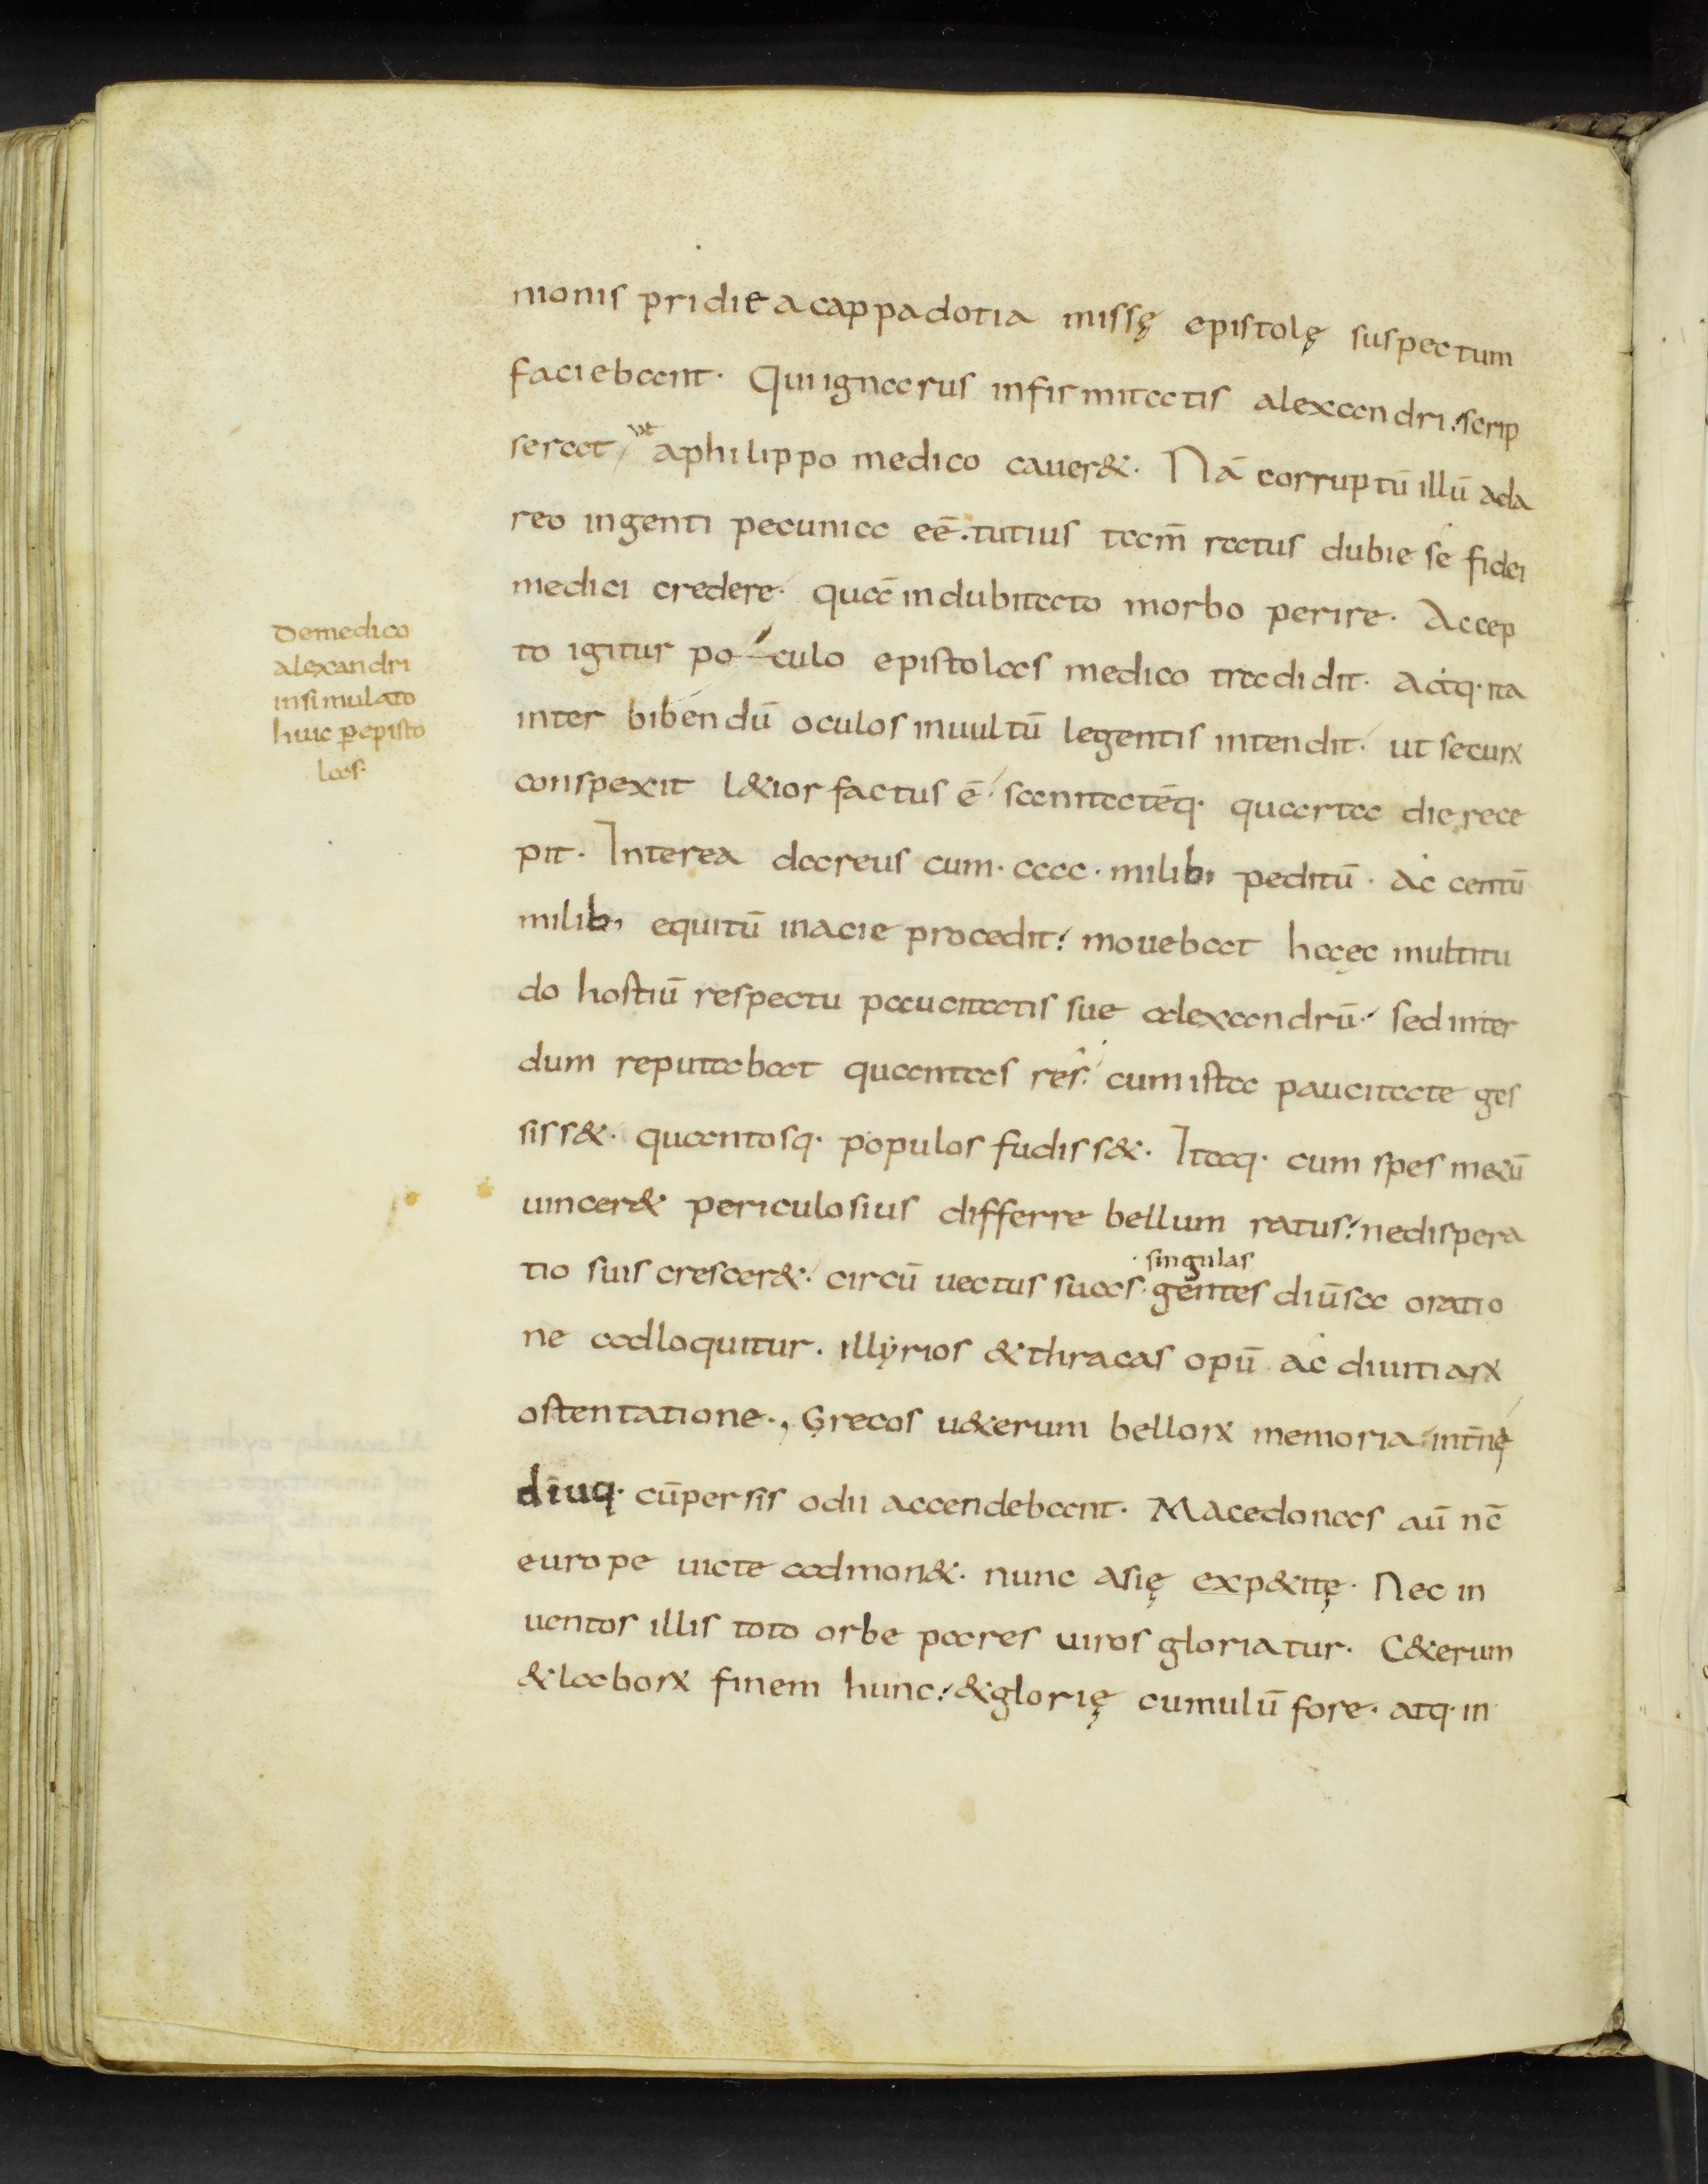 monis pridie a cappadotia missę epistolę suspectum
faciebant. Qui ignarus infirmitatis alexandri scrip
serat ut aphilippo medico cauer&. Nā corruptū illū ada
reo ingenti pecunia eē. tutius tam̄ ratus dubie se fidei
medici credere. quā indubitato morbo perire. Accep
to igitur poculo epistolas medico tradidit. Atq. ita
inter bibendū oculos inuultū legentis intendit. ut securꝝ
conspexit l&ior factus ē sanitatēq. quarta die rece
pit. Interea dareus cum. cccc. milib; peditū. ac centū
milib; equitū inacie procedit. mouebat haęc multitu
do hostiū respectu paucitatis sue alexandrū. sed inter
dum reputabat quantas res cum ista paucitate ges
siss&. quantosq. populos fudiss&. Itaq. cum spes metū
uincer& periculosius differre bellum ratus. nedispera
tio suis crescer&. circū uectus suas. gentes diūsa oratio
singulas
ne adloquitur. illyrios & thracas opū ac diuitiaꝝ
ostentatione., Grecos u&erum belloꝝ memoria int̄nę
diuq. cūpersis odii accendebant. Macedonas aū nc̄
europe uicte admon&. nunc asię exp&itę. Nec in
uentos illis toto orbe pares uiros gloriatur. C&erum
& laboꝝ finem hunc. & glorię cumulū fore. atq. in
Demedico
alexandri
insimulato
huic ꝑepisto
las.